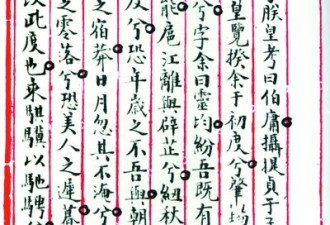 朕皇考曰伯庸攝提貞于
皇覽揆余于初度兮肇錫
兮字余曰靈均紛吾既有
能扈江離與辟芷兮紉秋
及兮恐年歲之不吾與朝
之宿莽日月忽其不淹兮
之零落兮恐美人之遲暮
改此度也乘騏驥以馳騁